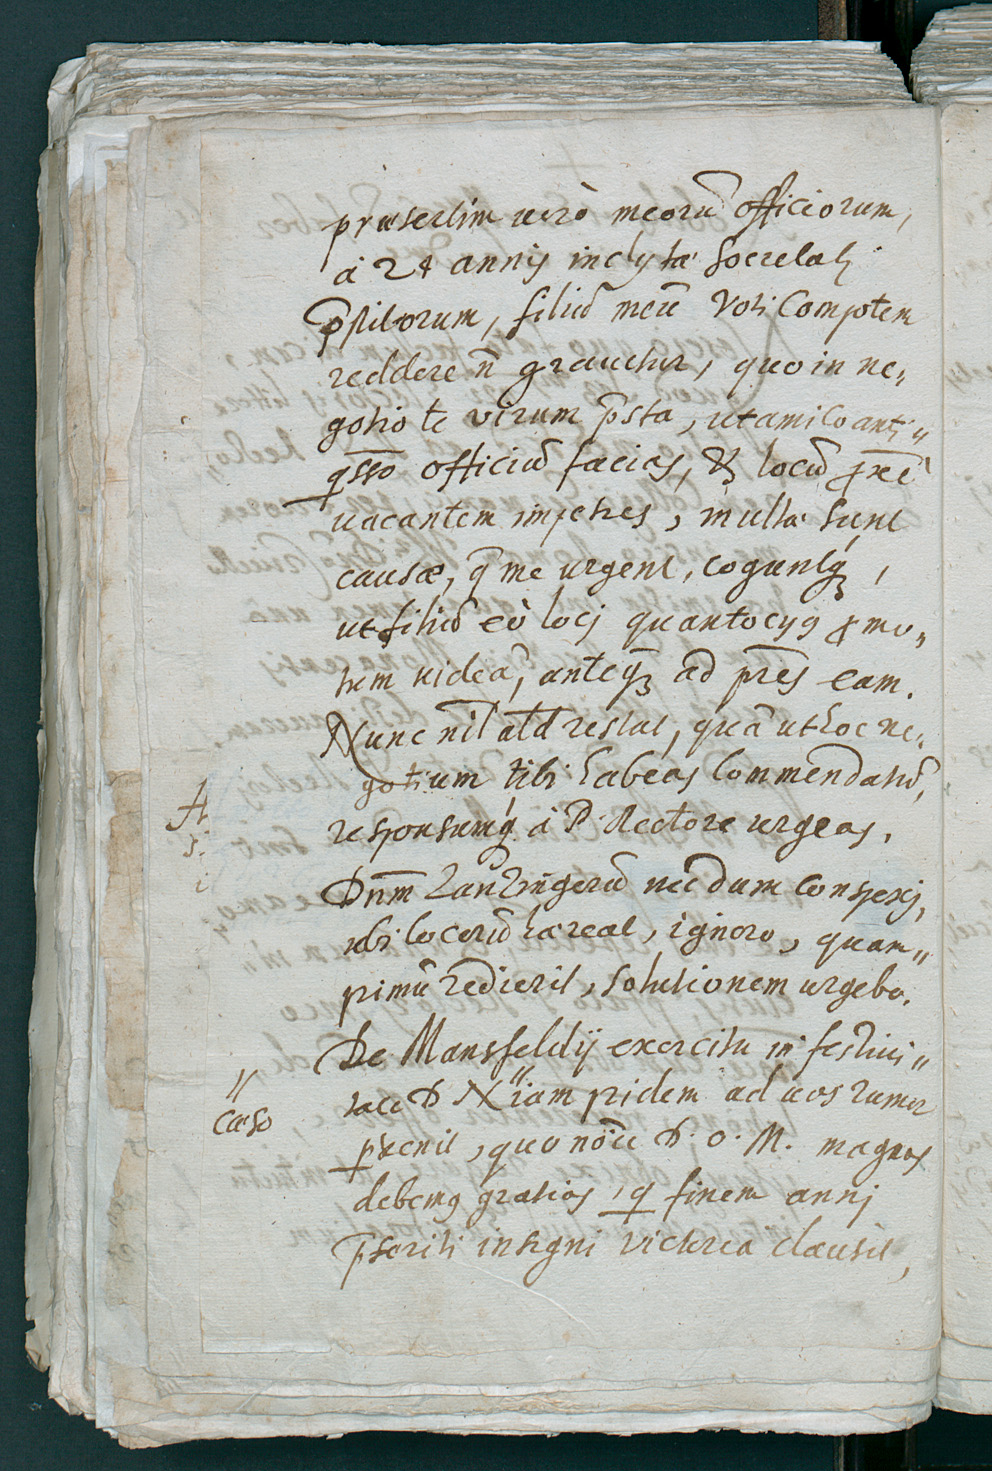 præsertim uerò meorū officiorum,
à 24 annis inclytæ Societati
p̄stitorum, filiū meū Voti Compotem
reddere n̄ grauetur, quo in ne„
gotio te virum p̄sta, ut amico anti„
qssō officiū facias, & locū px̄e
uacantem impetres, multæ sunt
causæ, q̄ me urgent, coguntq₃,
ut filiū eò locj quantocyꝰ ꝓmo„
tum uideā, anteq̄₃ ad p̄res eam.
Nunc nil aliđ restat, quā ut hoc ne„
gotium tibi habeas Commendatū,
responsumq̨ à P. Rectore urgeas.
Dnm̄ necdum conspexj,
ubi locorū hæreat, ignoro, quam„
primū redierit, solutionem urgebo.
De Mansfeldij exercitu in festiui„
tate D N iam pridem ad uos rumor
peruenit, quo nōīe D. O. M. magnas
debemꝰ gratias, q̄ finem annj
p̄teriti insigni victoria clausit,
"
cæso